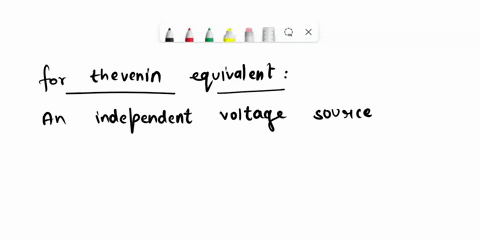 for thevenin equivalent :
An independent voltage source